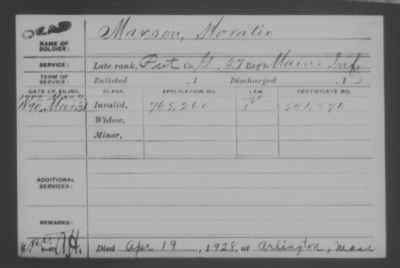 DEAD
NAME OF SOLDIER: Marson, Horatio
SERVICE: Late rank, Pvt Co. G, 27 Reg't Maine Inf.
TERM OF SERVICE: Enlisted , 1 Discharged , 1
DATE OF FILING. CLASS. APPLICATION NO. LAW CERTIFICATE NO.
1890, Mar 31 Invalid,
Widow,
Minor,
ADDITIONAL SERVICES:
REMARKS:
Died Apr 19, 1928, at Arlington, Mass